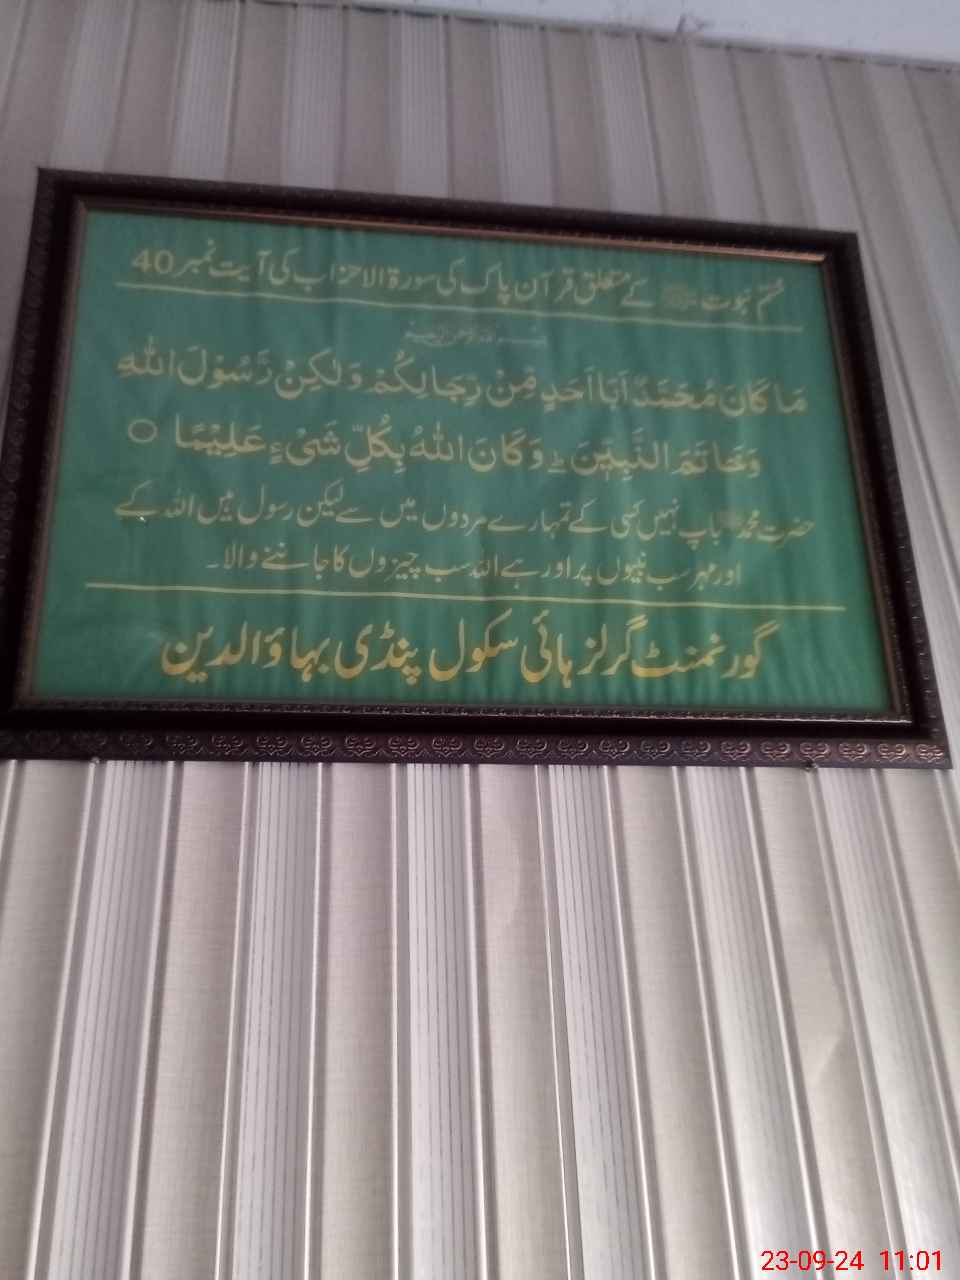 ختم نبوت ﷺ کے متعلق قرآن پاک کی سورۃ الاحزاب کی آیت نمبر 40
مَا كَانَ مُحَمَّدٌ اَبَآ اَحَدٍ مِّنْ رِّجَالِكُمْ وَلٰكِنْ رَّسُوْلَ اللّٰهِ
وَخَاتَمَ النَّبِيّٖنَ ؕ وَكَانَ اللّٰهُ بِكُلِّ شَیْءٍ عَلِيْمًا ○
حضرت محمدﷺ باپ نہیں کسی کے تمہارے مردوں میں سے لیکن رسول ہیں اللہ کے
اور مہر سب نبیوں پر اور ہے اللہ سب چیزوں کا جاننے والا۔
گورنمنٹ گرلز ہائی سکول پنڈی بہاؤالدین
23-09-24 11:01